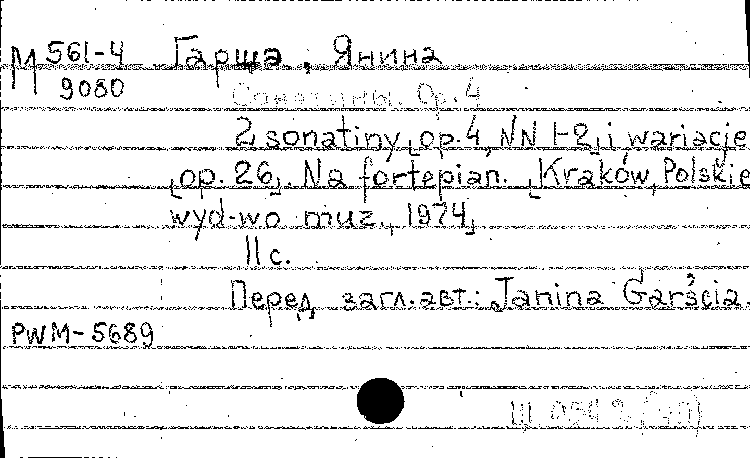 М 561-4 Гарща, Янина
9080
Сонатины. Op. 4
2 sonatiny [op. 4, NN 1-2] i wariacje
[op. 26]. Na fortepian. [Kraków, Polskie
wyd-wo muz., 1974]
11 с.
Перед загл. авт.: Janina Garścia.
PWM-5689